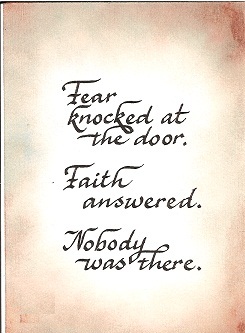 Fear
knocked at
the door.
Faith
answered.
Nobody
was there.